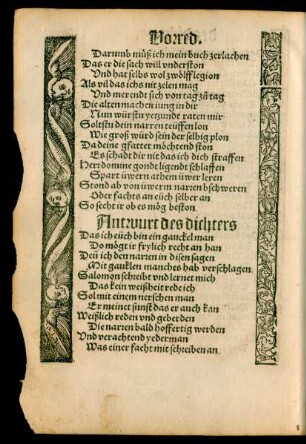 Vorred.
Darumb müß ich mein buch zerlachen
Das er die sach will vnderston
Vnd hat selbs wol zwölff legion
Als vil das ichs nit zelen mag
Vnd mer endt sich von tag zů tag
Die alten machen iung in dir
Nun würstu yetzundt raten mir
Soltstu dein narren teüffen lon
Wie groß würd sein der selbig plon
Da deine gfatter möchtend ston
Es schadt dir nit das ich dich straffen
Herr domine gond ir ligendt schlaffen
Spart üwern athem üwer leren
Stond ab von üwerm narren bschweren
Oder fachts an eüch selber an
So secht ir ob es mög beston
Antwurt des dichters
Das ich eüch bin ein ganckel man
Do mögt ir frylich recht an han
Den ich den narren in disen sagen
Mit gaucklen manches hab verschlagen
Salomon schreibt vnd lernet mich
Das kein weißheit rede ich
Sol mit einem nerschen man
Er meinet sunst das er auch kan
Weißlich reden vnd geberden
Die narren bald hoffertig werden
Vnd verachtend yederman
Was einer facht mit schreiben an